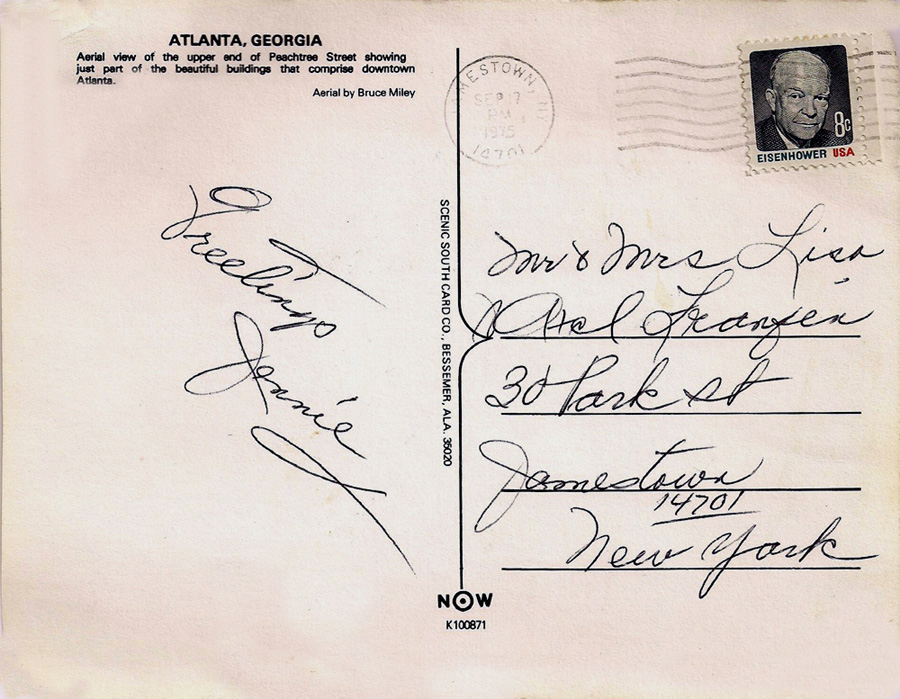 ATLANTA, GEORGIA
Aerial view of the upper end of Peachtree Street showing
just part of the beautiful buildings that comprise downtown
Atlanta.
Aerial by Bruce Miley
MESTOWN, NY
SEP 17
PM
1975
14701
8c
EISENHOWER USA
Greetings
Jennie
SCENIC SOUTH CARD CO., BESSEMER, ALA. 35020
Mr & Mrs Lisa
Franzen
30 Park St
Jamestown
14701
New York
NOW
K100871